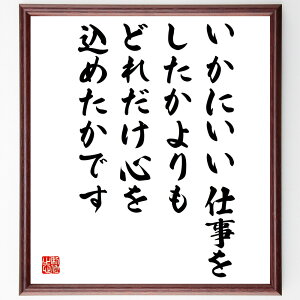 いかにいい仕事を
したかよりも
どれだけ心を
込めたかです